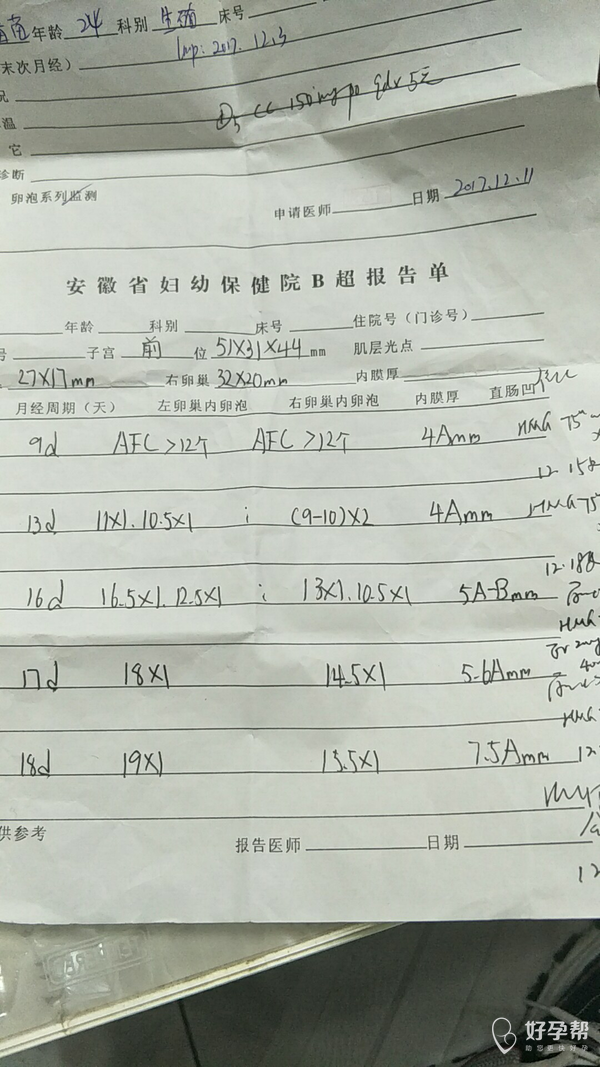 年龄 24 科别 生殖 床号
末次月经） lmp: 2017.12.3
况
温 D5 CC 150mg po qd×5天
它
诊断
卵泡系列监测
申请医师 日期 2017.12.11
安徽省妇幼保健院B超报告单
年龄 科别 床号 住院号（门诊号）
号 子宫 前 位 51×31×44 mm 肌层光点
27×17mm 右卵巢 32×20mm 内膜厚
月经周期（天） 左卵巢内卵泡 右卵巢内卵泡 内膜厚 直肠凹
9d AFC>12个 AFC>12个 4Amm HMG 75
12.15
13d 11×1.10.5×1 ; (9-10)×2 4Amm HMG 75
12.18
16d 16.5×1.12.5×1 ; 13×1.10.5×1 5A-Bmm
HMG
17d 18×1 14.5×1 5-6Amm
HMG
18d 19×1 15.5×1 7.5Amm 12
供参考
报告医师 日期
12
好孕帮
助您更快好孕